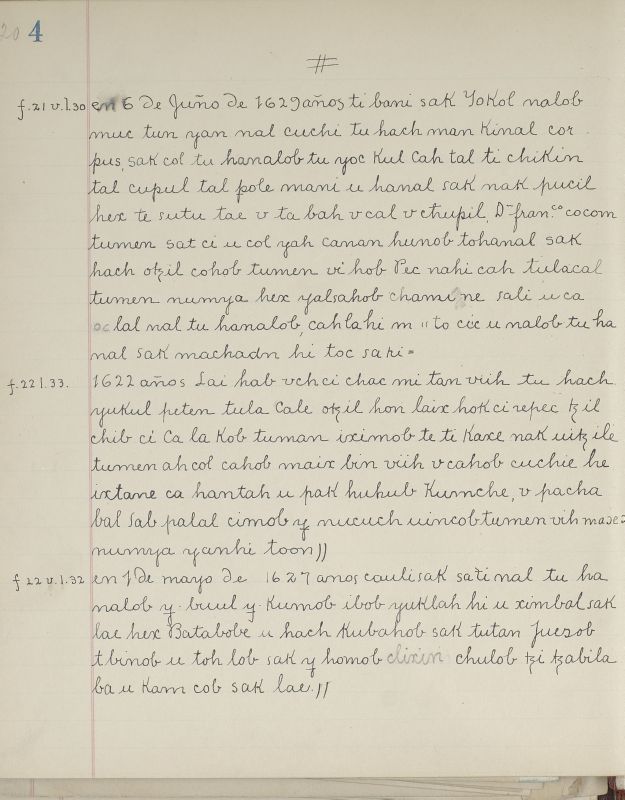 20 4
#
f.21 v.l.30 en 6 de Juño de 1629 años ti bani sak Yokol nalob
muc tun yan nal cuchi tu hach man Kinal cor
pus, sak col tu hanalob tu yoc Kul Cah tal ti chikin
tal cupul tal pole mani u hanal sak nak pucil
hex te sutu tac v ta bah v cal v chupil, Dn fran.co cocom
tumen sat ci u col yah canan hunob tohanal sak
hach otzil cohob tumen vi hob Pec nahi cah tulacal
tumen numya hex yalsahob chami ne sali u ca
lal nal tu hanalob, cahlahi m "to cic u nalob tu ha
nal sak machadn hi toc sati=
f.22 l.33. 1622 años Lai hab vchci chac mi tan viih tu hach
yukul peten tula Cale otzil hon laix hok ci repec tzil
chib ci Ca la Kob tuman iximob te ti Kaxe nak uitz ile
tumen ah col cahob maix bin viih v cahob cuchie he
ixtane ca hantah u pak huhub Kumche, v pacha
bal sab palal cimob y nucuch uincob tumen vih
numya yanhi toon //
f 22 v.l.32 en 1 de mayo de 1627 anos cauli sak sati nal tu ha
nalob y. buul y. Kumob ibob yuklah hi u ximbal sak
lae hex Batabobe u hach Kubahob sak tutan Juezob
t binob u toh lob sak y homob clixin chulob tzi tzabila
ba u Kam cob sak lae. //